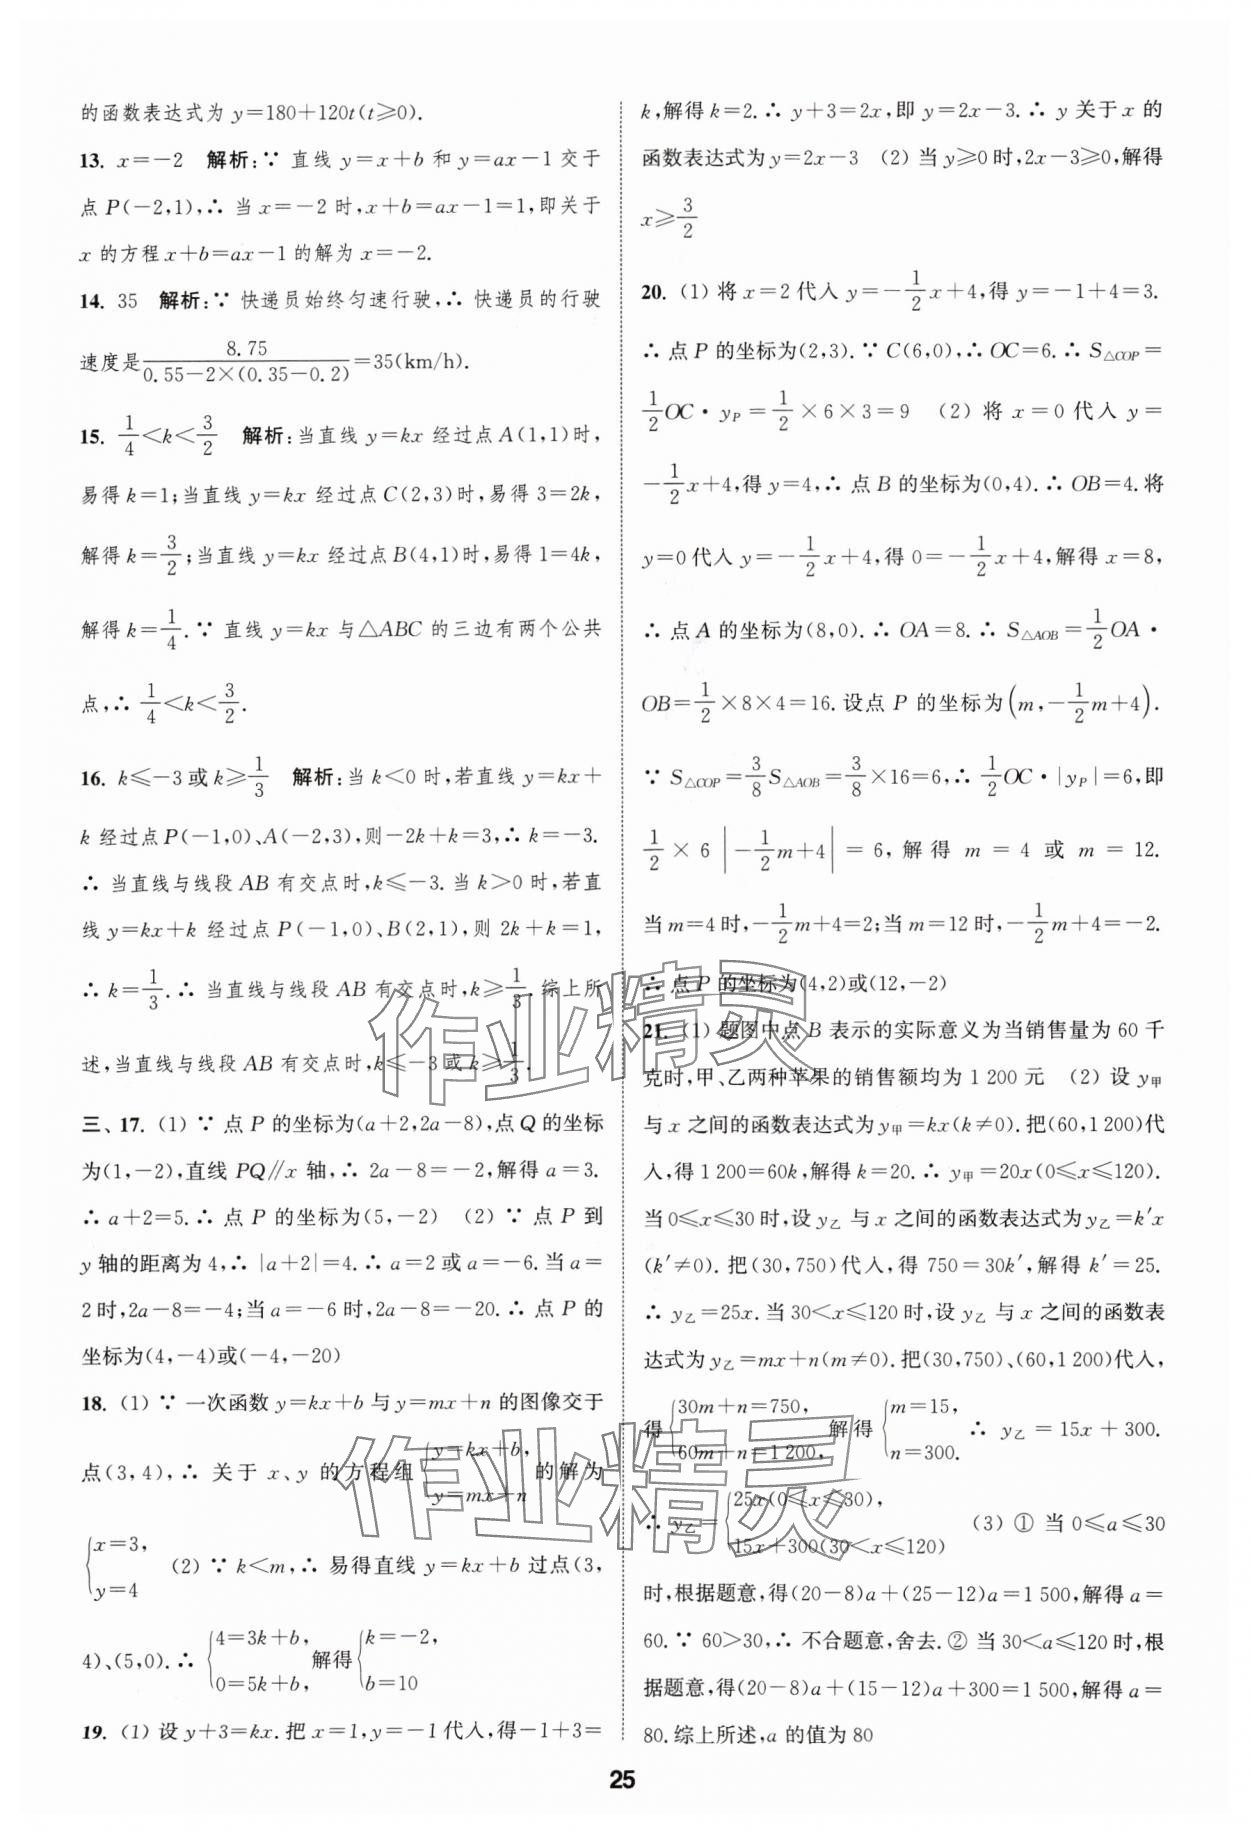 的函数表达式为 y=180+120t(t≥0).
13. x=-2 解析:∵ 直线 y=x+b 和 y=ax-1 交于
点 P(-2,1),∴ 当 x=-2 时,x+b=ax-1=1,即关于
x 的方程 x+b=ax-1 的解为 x=-2.
14. 35 解析:∵ 快递员始终匀速行驶,∴ 快递员的行驶
速度是 8.75/(0.55-2×(0.35-0.2))=35(km/h).
15. 1/4<k<3/2 解析:当直线 y=kx 经过点 A(1,1)时,
易得 k=1;当直线 y=kx 经过点 C(2,3)时,易得 3=2k,
解得 k=3/2;当直线 y=kx 经过点 B(4,1)时,易得 1=4k,
解得 k=1/4.∵ 直线 y=kx 与△ABC 的三边有两个公共
点,∴ 1/4<k<3/2.
16. k≤-3 或 k≥1/3 解析:当 k<0 时,若直线 y=kx+
k 经过点 P(-1,0)、A(-2,3),则-2k+k=3,∴ k=-3.
∴ 当直线与线段 AB 有交点时,k≤-3.当 k>0 时,若直
线 y=kx+k 经过点 P(-1,0)、B(2,1),则 2k+k=1,
∴ k=1/3.∴ 当直线与线段 AB 有交点时,k≥1/3.综上所
述,当直线与线段 AB 有交点时,k≤-3 或 k≥1/3.
三、17. (1) ∵ 点 P 的坐标为(a+2,2a-8),点 Q 的坐标
为(1,-2),直线 PQ∥x 轴,∴ 2a-8=-2,解得 a=3.
∴ a+2=5.∴ 点 P 的坐标为(5,-2) (2) ∵ 点 P 到
y 轴的距离为 4,∴ |a+2|=4.∴ a=2 或 a=-6.当 a=
2 时,2a-8=-4;当 a=-6 时,2a-8=-20.∴ 点 P 的
坐标为(4,-4)或(-4,-20)
18. (1) ∵ 一次函数 y=kx+b 与 y=mx+n 的图像交于
点(3,4),∴ 关于 x、y 的方程组{y=kx+b, y=mx+n 的解为
{x=3, y=4 (2) ∵ k<m,∴ 易得直线 y=kx+b 过点(3,
4)、(5,0).∴ {4=3k+b, 0=5k+b, 解得{k=-2, b=10
19. (1) 设 y+3=kx.把 x=1,y=-1 代入,得-1+3=
k,解得 k=2.∴ y+3=2x,即 y=2x-3.∴ y 关于 x 的
函数表达式为 y=2x-3 (2) 当 y≥0 时,2x-3≥0,解得
x≥3/2
20. (1) 将 x=2 代入 y=-1/2x+4,得 y=-1+4=3.
∴ 点 P 的坐标为(2,3).∵ C(6,0),∴ OC=6.∴ S△COP=
1/2OC·yP=1/2×6×3=9 (2) 将 x=0 代入 y=
-1/2x+4,得 y=4,∴ 点 B 的坐标为(0,4).∴ OB=4.将
y=0 代入 y=-1/2x+4,得 0=-1/2x+4,解得 x=8,
∴ 点 A 的坐标为(8,0).∴ OA=8.∴ S△AOB=1/2OA·
OB=1/2×8×4=16.设点 P 的坐标为(m,-1/2m+4).
∵ S△COP=3/8S△AOB=3/8×16=6,∴ 1/2OC·|yP|=6,即
1/2×6|-1/2m+4|=6,解得 m=4 或 m=12.
当 m=4 时,-1/2m+4=2;当 m=12 时,-1/2m+4=-2.
∴ 点 P 的坐标为(4,2)或(12,-2)
21. (1) 题图中点 B 表示的实际意义为当销售量为 60 千
克时,甲、乙两种苹果的销售额均为 1 200 元 (2) 设 y甲
与 x 之间的函数表达式为 y甲=kx(k≠0).把(60,1 200)代
入,得 1 200=60k,解得 k=20.∴ y甲=20x(0≤x≤120).
当 0≤x≤30 时,设 y乙 与 x 之间的函数表达式为 y乙=k′x
(k′≠0).把(30,750)代入,得 750=30k′,解得 k′=25.
∴ y乙=25x.当 30<x≤120 时,设 y乙 与 x 之间的函数表
达式为 y乙=mx+n(m≠0).把(30,750)、(60,1 200)代入,
得{30m+n=750, 60m+n=1 200, 解得{m=15, n=300. ∴ y乙=15x+300.
∴ y乙={25x(0≤x≤30), 15x+300(30<x≤120) (3) ① 当 0≤a≤30
时,根据题意,得(20-8)a+(25-12)a=1 500,解得 a=
60.∵ 60>30,∴ 不合题意,舍去.② 当 30<a≤120 时,根
据题意,得(20-8)a+(15-12)a+300=1 500,解得 a=
80.综上所述,a 的值为 80
25
作业精灵
作业精灵